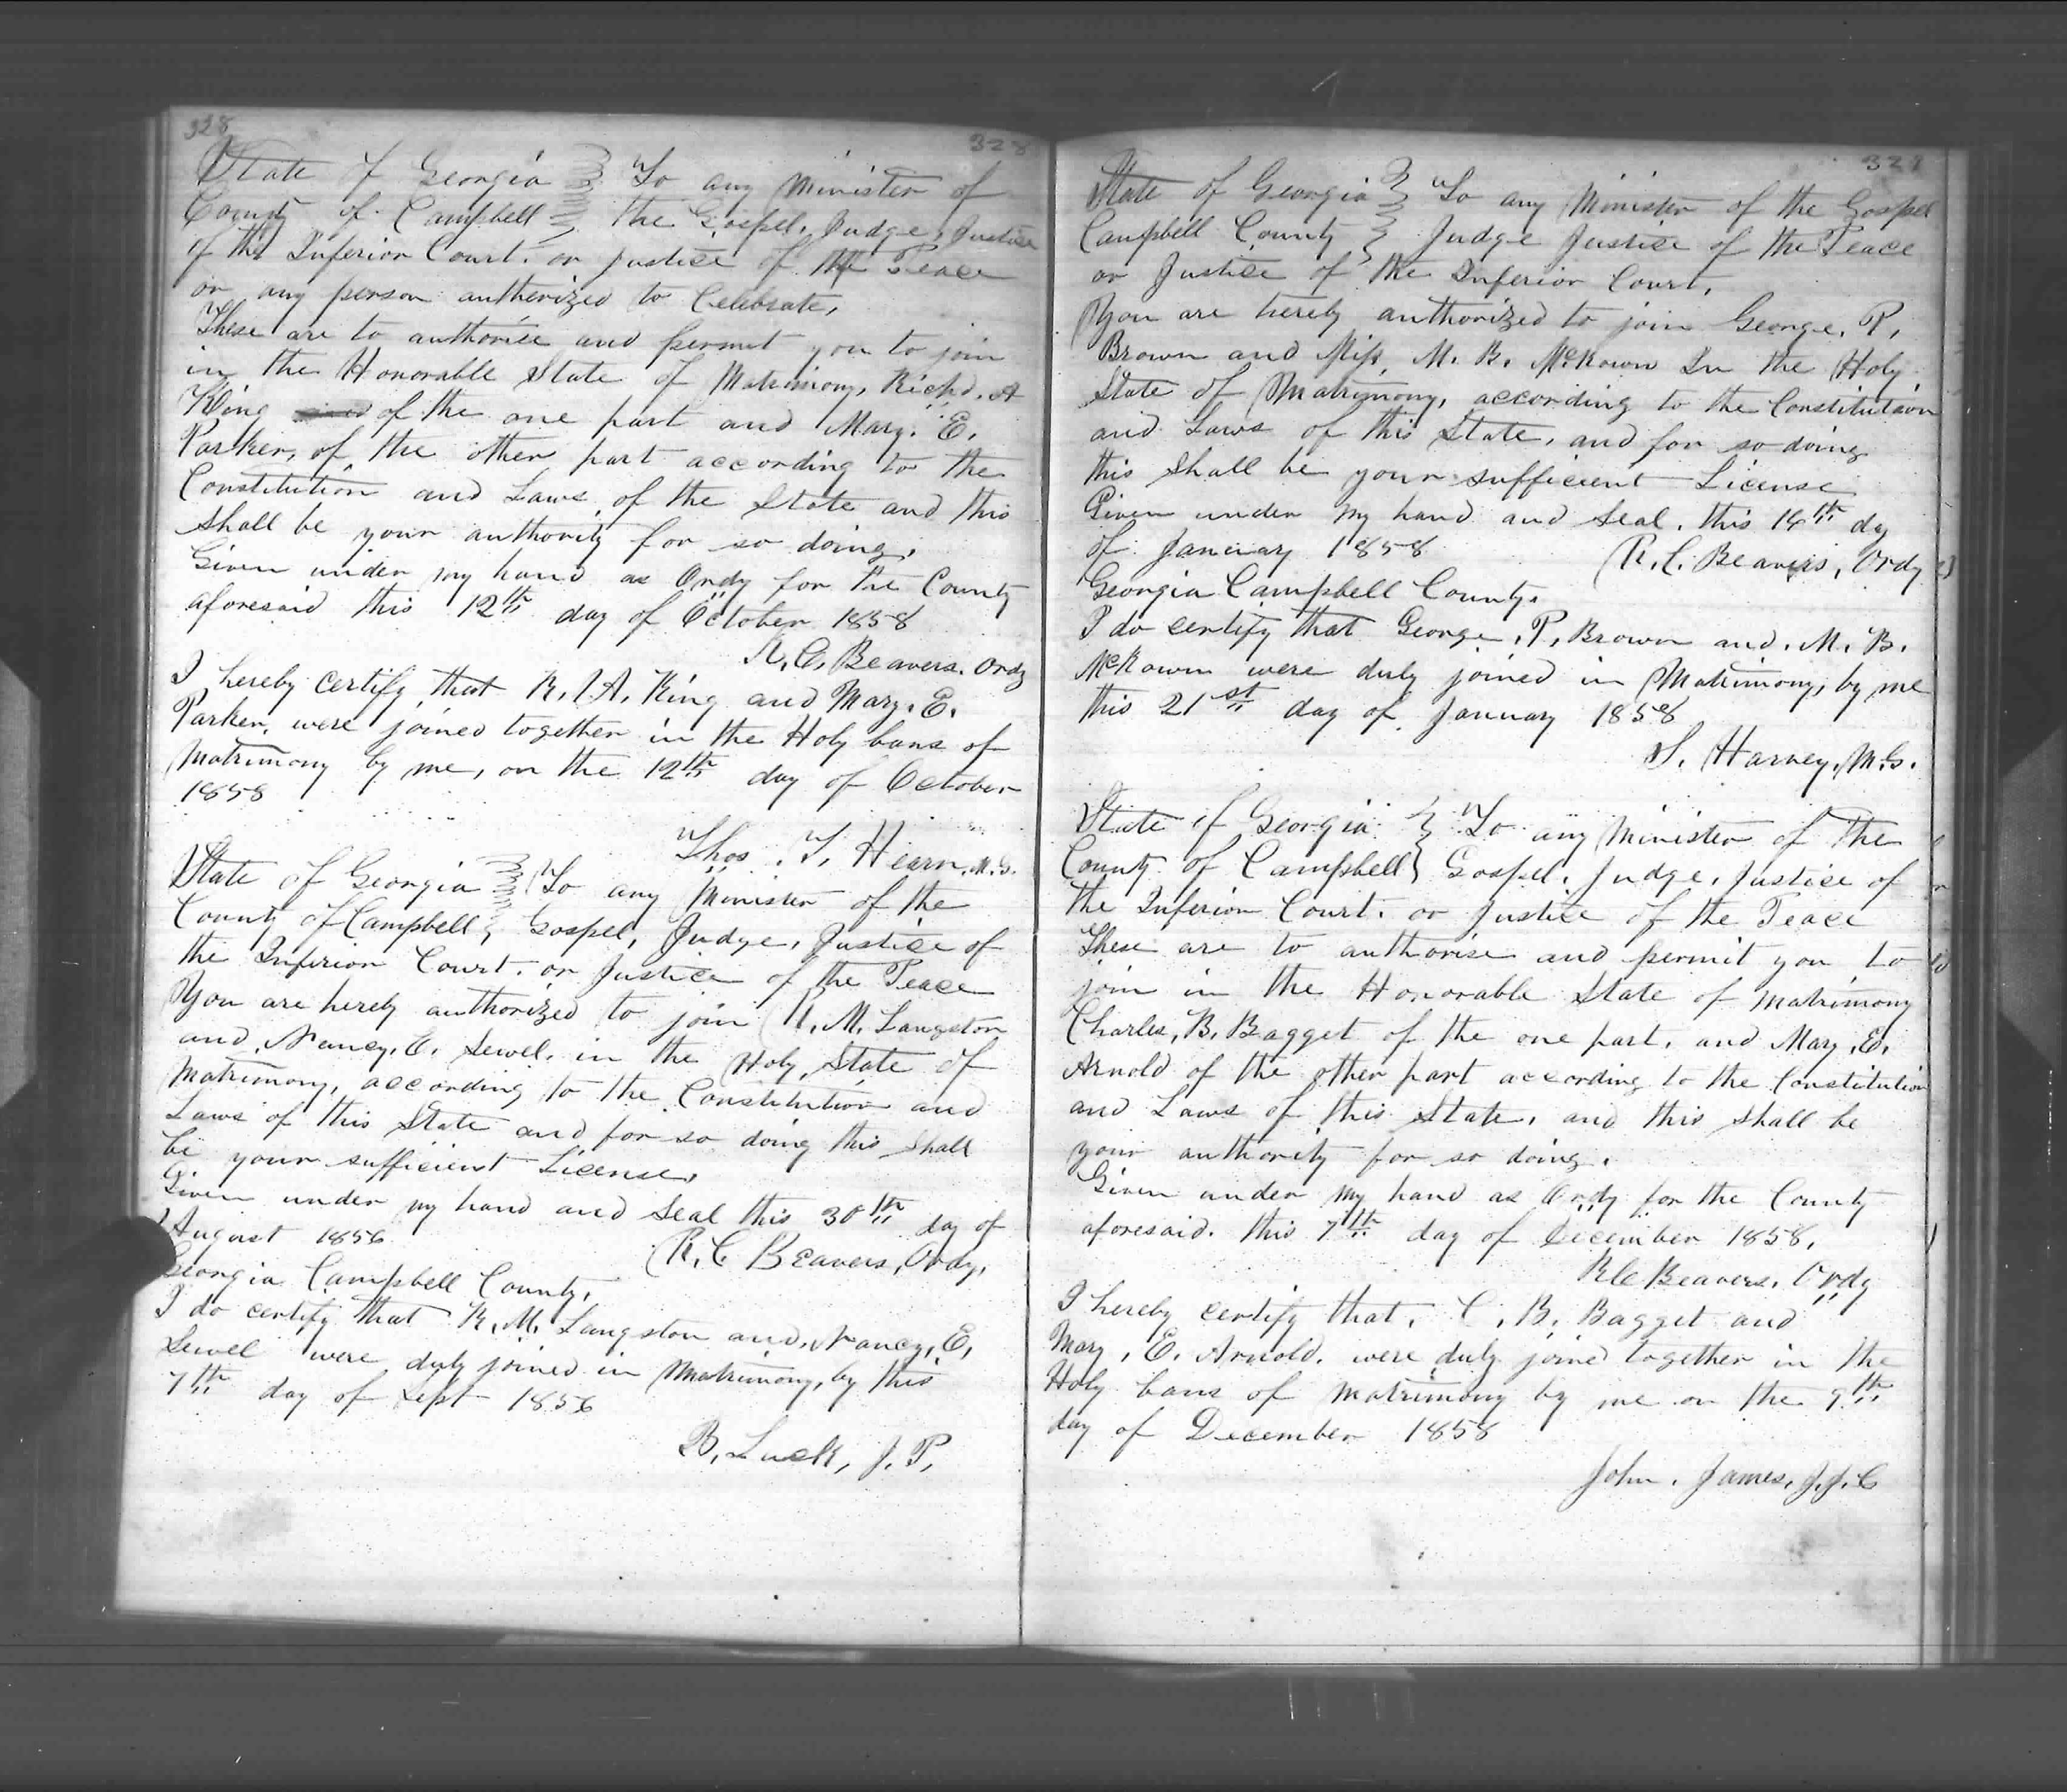 328
328
State of Georgia } To any Minister of
County of Campbell } the Gospel, Judge, Justice
of the Inferior Court. or Justice of the Peace
or any person authorized to Celebrate,
These are to authorise and permit you to join
in the Honorable State of Matrimony, Richd. A
King of the one part and Mary. E.
Parker, of the other part according to the
Constitution and Laws of the State and this
shall be your authority for so doing,
Given under my hand as Ordy for the County
aforesaid this 12th day of October 1858
R. C. Beavers. Ordy
I hereby certify that R. A. King and Mary. E.
Parker, were joined together in the Holy bans of
Matrimony by me, on the 12th day of October
1858
Thos. T. Hearn, M.G.
State of Georgia } To any Minister of the
County of Campbell } Gospel, Judge, Justice of
the Inferior Court. or Justice of the Peace
You are hereby authorized to join R. M. Langston
and, Nancy. E. Sewel. in the Holy State of
Matrimony, according to the Constitution and
Laws of this State and for so doing this shall
be your sufficient License,
Given under my hand and Seal this 30th day of
August 1856
R. C Beavers, Ordy,
Georgia Campbell County,
I do certify that R. M. Langston and, Nancy, E,
Sewel were duly joined in Matrimony, by this
7th day of Sept 1856
B. Luck, J. P,
State of Georgia } To any Minister of the Gospel
Campbell County } Judge Justice of the Peace
or Justice of the Inferior Court,
You are hereby authorized to join George. R,
Brown and Miss, M. B. McKown In the Holy
State of Matrimony, according to the Constitution
and Laws of this State, and for so doing
this shall be your sufficient License
Given under my hand and Seal. this 14th day
of January 1858
R. C. Beavers, Ordy
Georgia Campbell County.
I do certify that George. P. Brown and. M. B.
McKown were duly joined in Matrimony, by me
this 21st day of January 1858
S. Harvey, M.G.
State of Georgia } To any Minister of the
County of Campbell } Gospel. Judge. Justice of
the Inferior Court. or Justice of the Peace
These are to authorise and permit you to
join in the Honorable State of matrimony
Charles, B. Bagget of the one part, and Mary, E.
Arnold of the other part according to the Constitution
and Laws of this State, and this shall be
your authority for so doing.
Given under my hand as Ordy for the County
aforesaid. this 7th day of December 1858,
R C Beavers, Ordy
I hereby certify that, C. B. Bagget and
Mary, E. Arnold. were duly joined together in the
Holy bans of matrimony by me on the 9th
day of December 1858
John. James, J. J. C